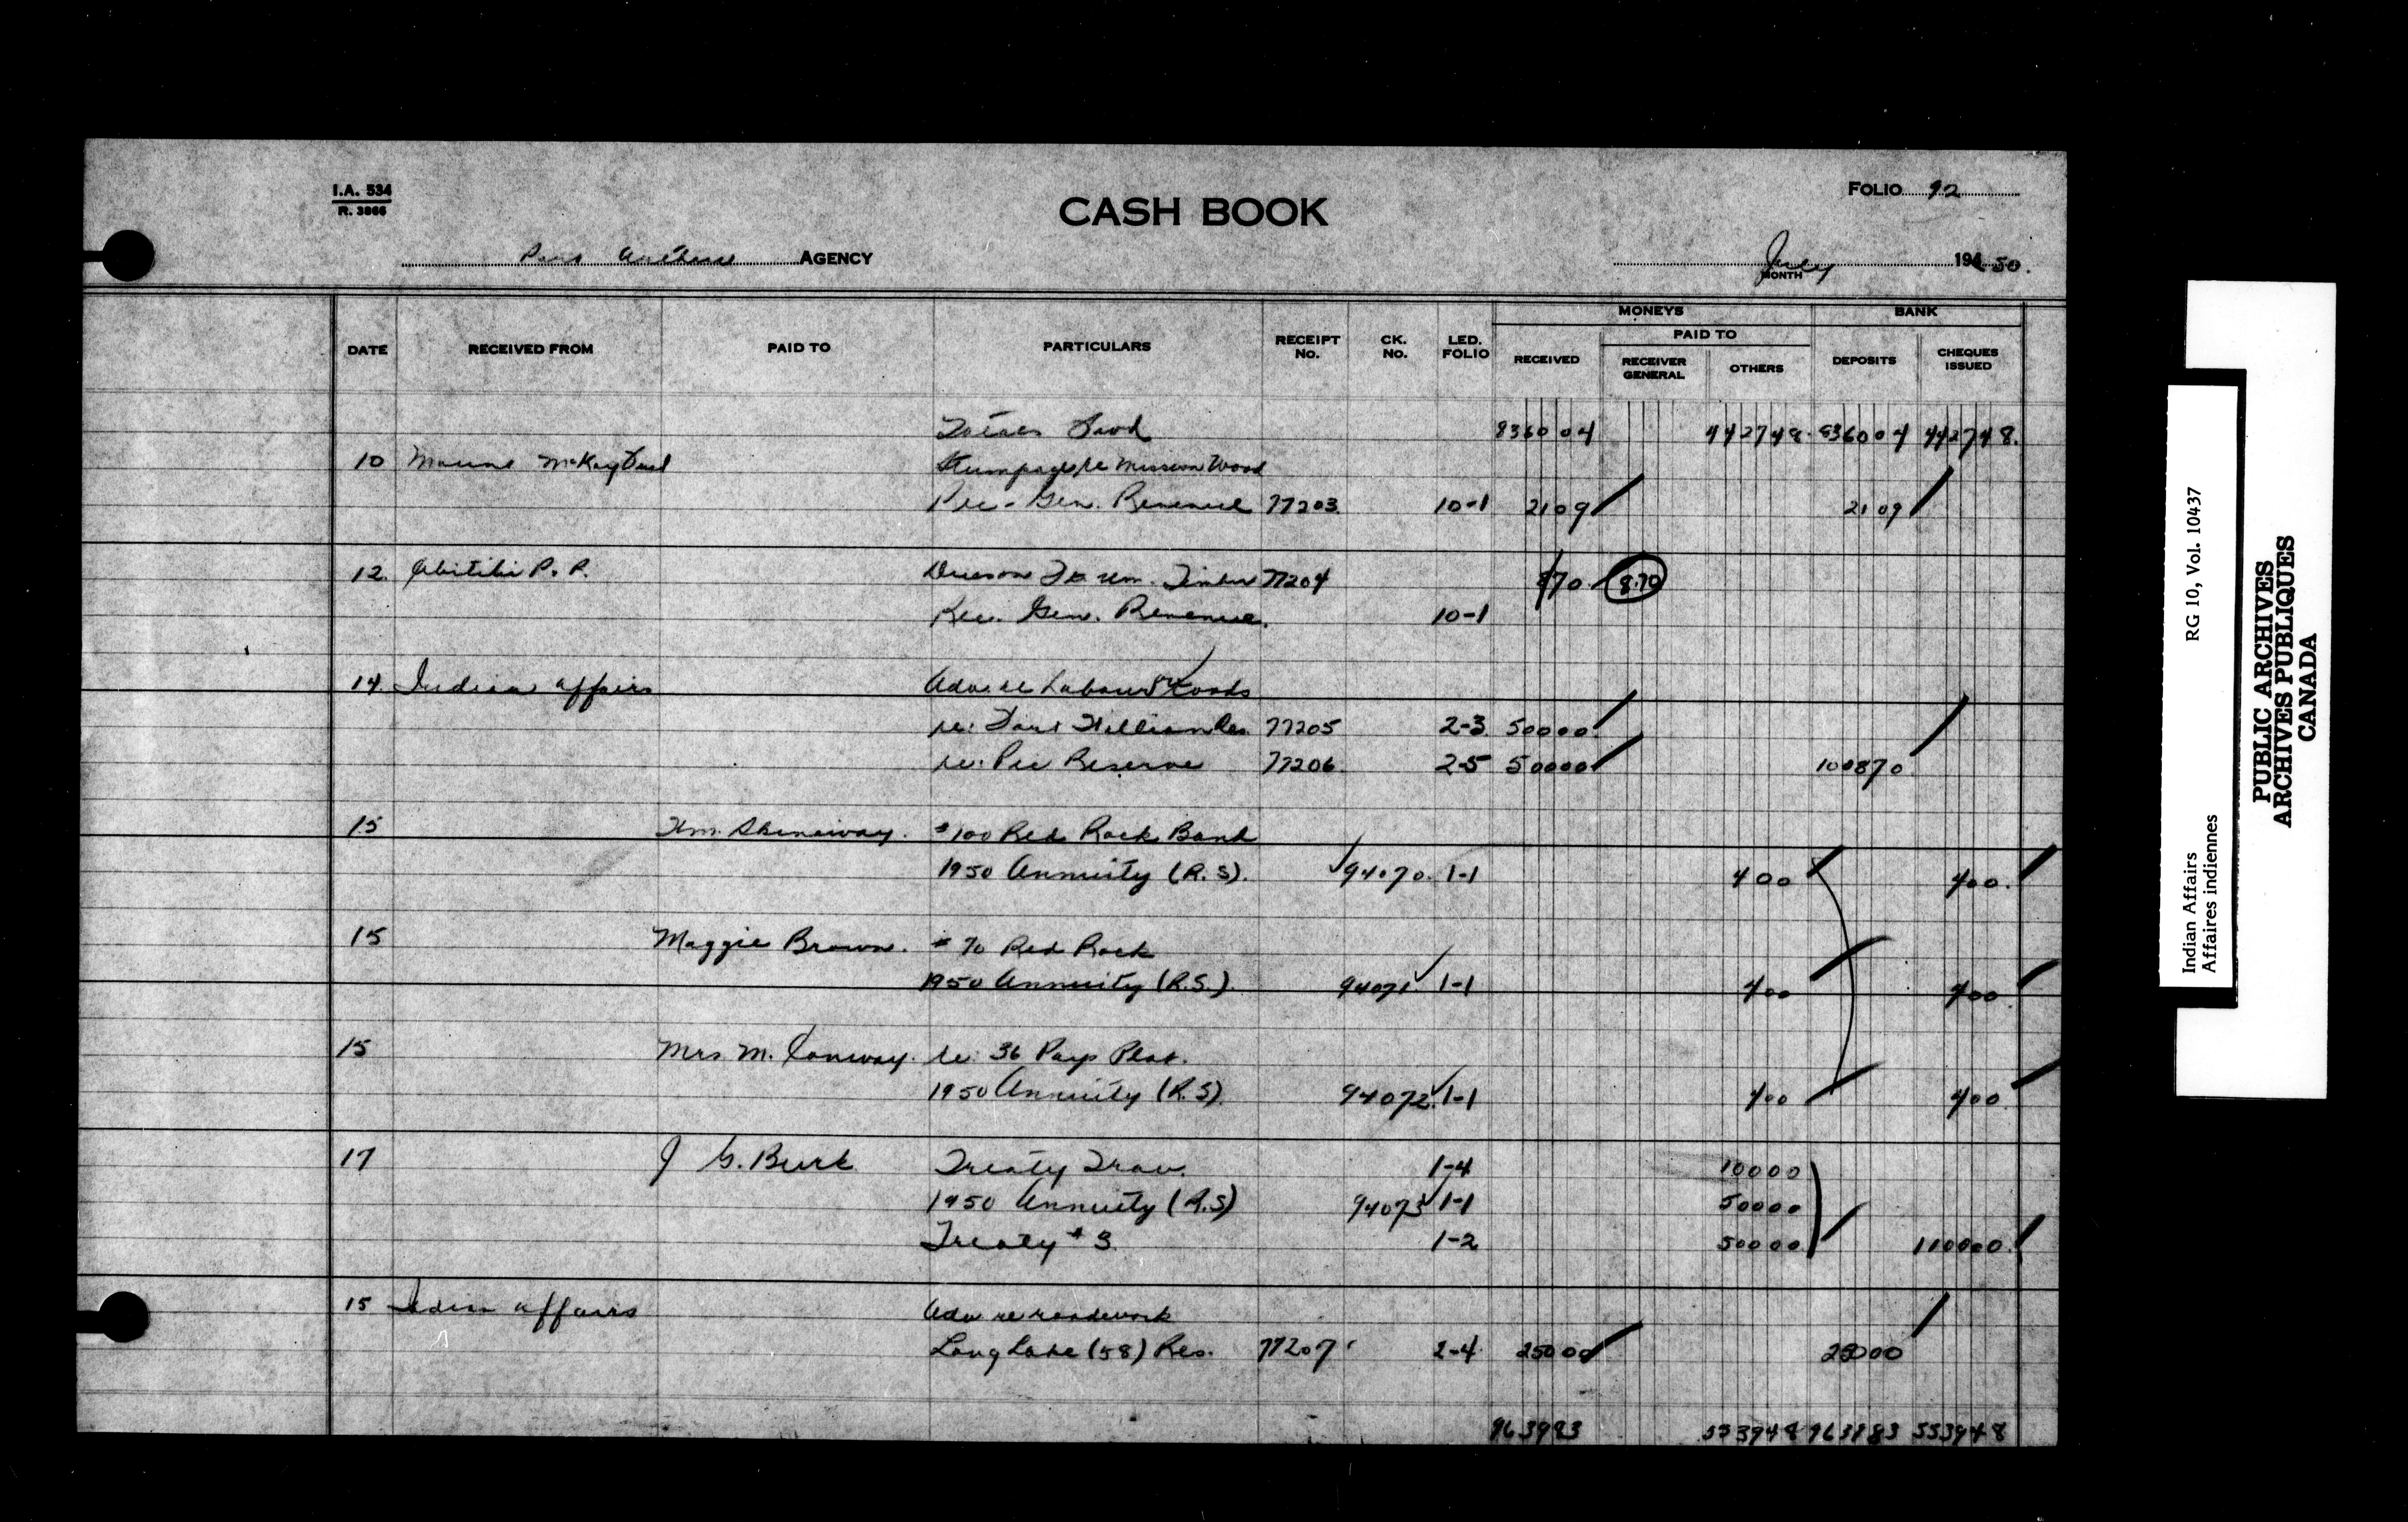 I.A. 534
R. 3866
CASH BOOK
FOLIO 92
Port Arthur AGENCY
July 194 50.
MONTH
MONEYS BANK
PAID TO
DATE RECEIVED FROM PAID TO PARTICULARS RECEIPT No. CK. No. LED. FOLIO RECEIVED RECEIVER GENERAL OTHERS DEPOSITS CHEQUES ISSUED
Totals Forwd 8360 04 4427 48 8360 04 4427 48.
10 Mount McKay Stumpage re Mission Wood
Rec. Gen. Revenue 77203 10-1 21 09 21 09
12. Abitibi P. P. Timber 77204 8 70 8.70
Rec. Gen. Revenue. 10-1
14. Indian Affairs Adv. re Labour on roads
re: Fort William Res. 77205 2-3 500 00
re: Pic Reserve 77206 2-5 500 00 1008 70
15 Wm. Shinaway. #100 Red Rock Band
1950 Annuity (R.S). 94070 1-1 4 00 4 00.
15 Maggie Brown. # 70 Red Rock
1950 Annuity (R.S.). 94071 1-1 4 00 4 00
15 Mrs M. Conway. re: 36 Pays Plat.
1950 Annuity (R.S). 94072 1-1 4 00 4 00
17 J G. Burk Treaty Trav. 1-4 100 00
1950 Annuity (R.S) 94073 1-1 500 00
Treaty #3 1-2 500 00 1100 00.
15 Indian Affairs Adv re roadwork
Long Lake (58) Res. 77207 2-4 250 00 250 00
9639 83 5539 48 9639 83 5539 48
Indian Affairs RG 10, Vol. 10437
Affaires indiennes
PUBLIC ARCHIVES
ARCHIVES PUBLIQUES
CANADA